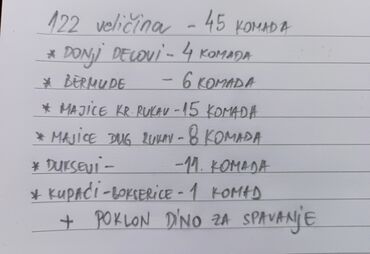 122 veličina - 45 KOMADA
* DONJI DELOVI - 4 KOMADA
* BERMUDE - 6 KOMADA
* MAJICE KR RUKAV - 15 KOMADA
* MAJICE DUG RUKAV - 8 KOMADA
* DUKSEVI - - 11. KOMADA
* KUPAĆI - BOKSERICE - 1 KOMAD
+ POKLON DINO ZA SPAVANJE